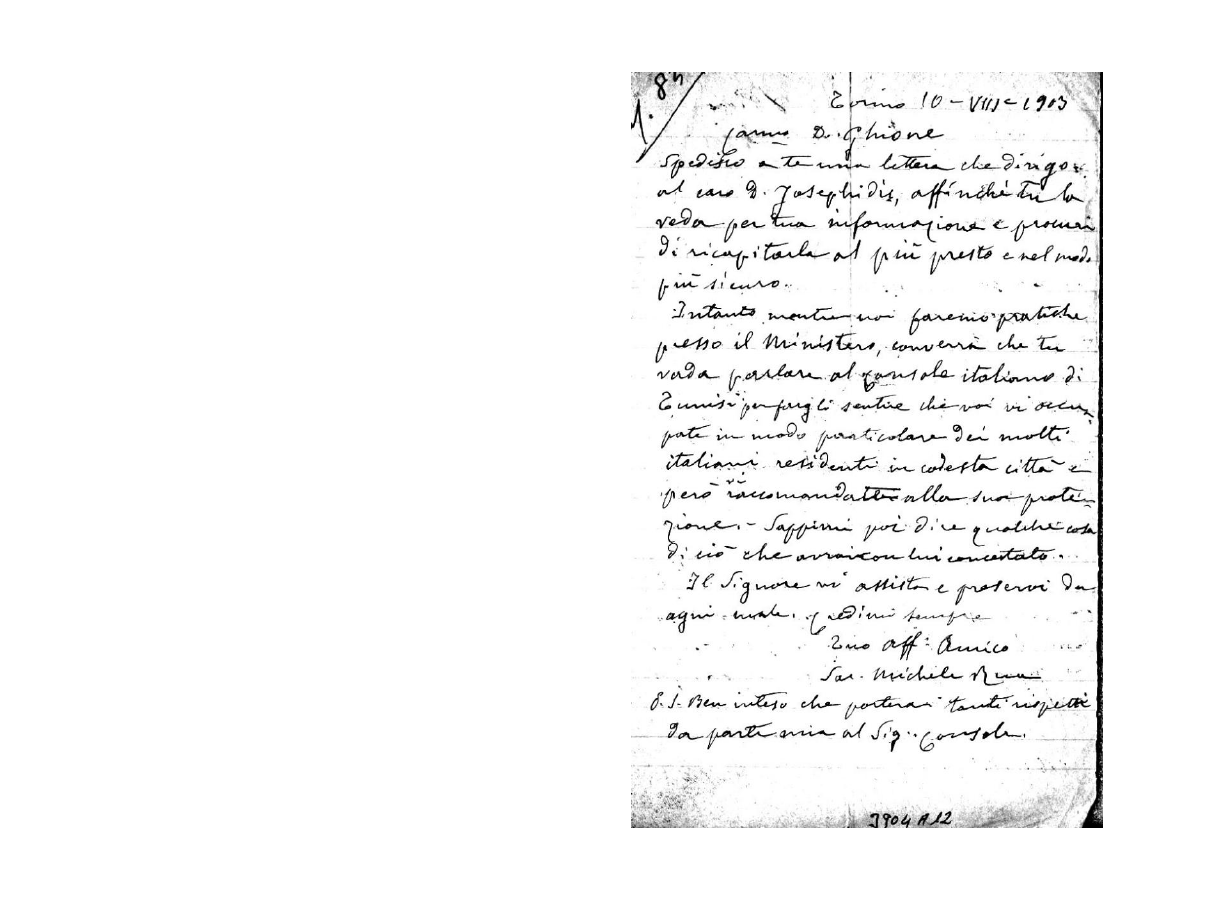 85
1.
Torino 10-VIII-1903
Carmo D. Ghione
Spedisco a te una lettera che dirigo
al caro D. Josephidis, affinchè tu la
veda per tua informazione e procuri
di ricapitarla al più presto e nel modo
più sicuro.
Intanto mentre noi faremo pratiche
presso il Ministero, converrà che tu
vada parlare al Console italiano di
Tunisi per fargli sentire che voi vi occu-
pate in modo particolare dei molti
italiani residenti in codesta città e
però vi raccomandate alla sua prote-
zione. - Sappimi poi dire qualche cosa
di ciò che avrai con lui concertato.
Il Signore vi assista e preservi da
ogni male. Credimi sempre
Tuo aff. Amico
Sac. Michele Rua
P.S. Ben inteso che porterai tanti rispetti
da parte mia al Sig. Console.
3904 A 12